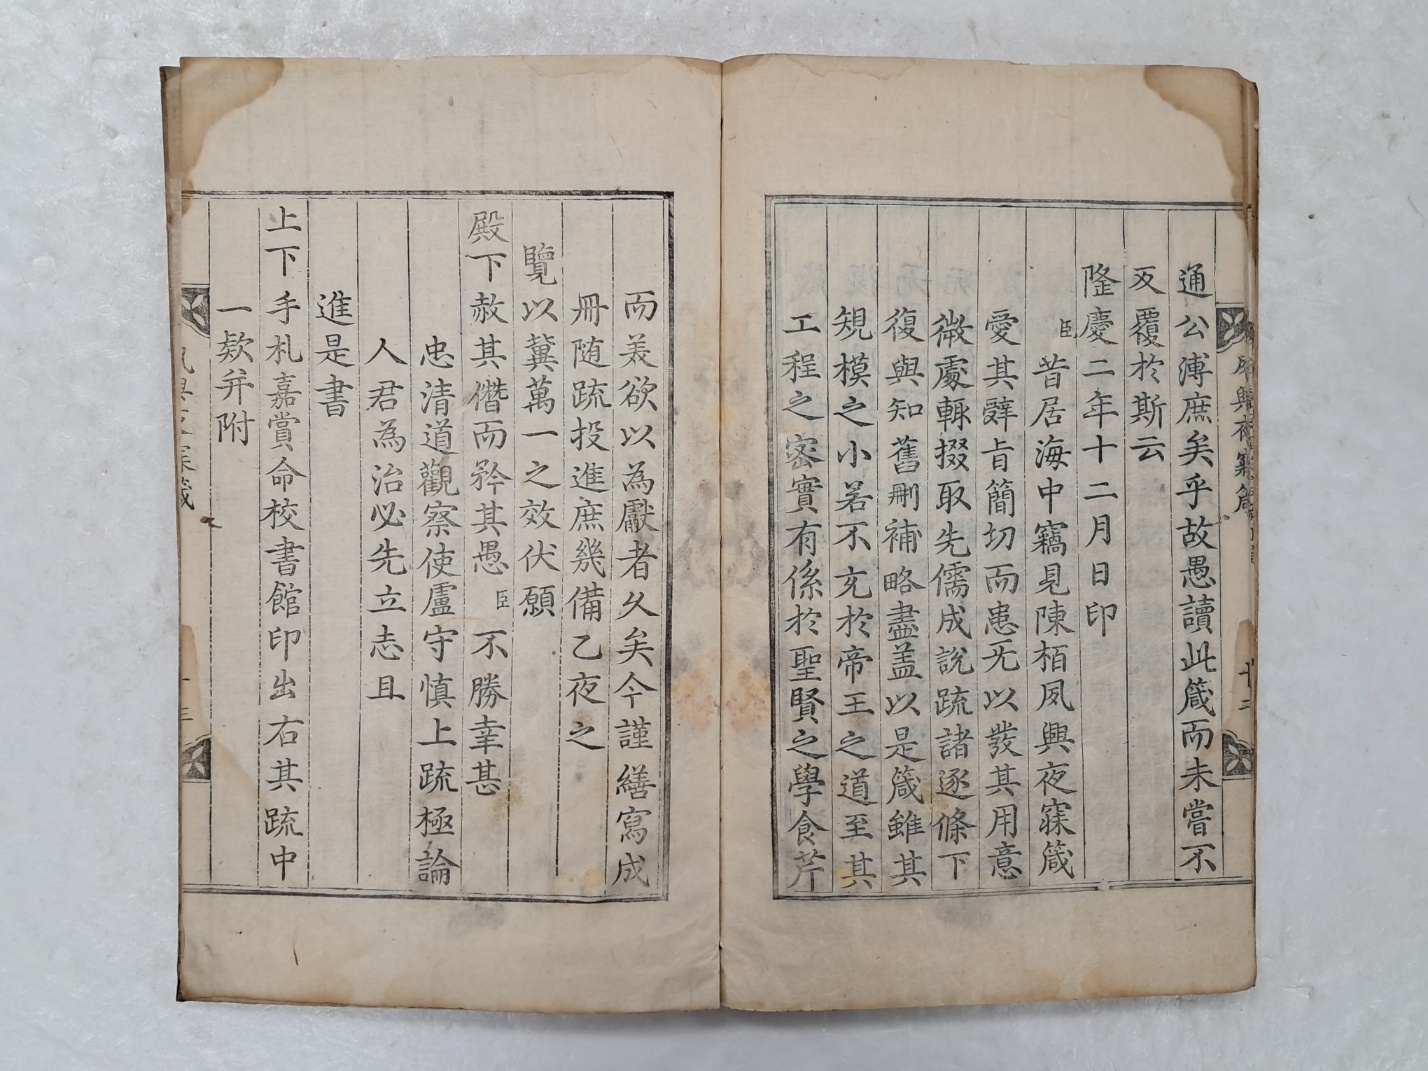 通公溥庶矣乎故愚讀此箴而未嘗不
反覆於斯云
隆慶二年十二月日印
臣昔居海中竊見陳栢夙興夜寐箴
愛其辭旨簡切而患无以發其用意
微處輒掇取先儒成說疏諸逐條下
復與知舊刪補略盡盖以是箴雖其
規模之小若不亢於帝王之道至其
工程之密實有係於聖賢之學食芹
而美欲以為獻者久矣今謹繕寫成
冊随疏投進庶幾備乙夜之
覽以冀萬一之效伏願
殿下赦其僭而矜其愚臣不勝幸甚
忠清道觀察使盧守慎上疏極論
人君為治必先立志且
進是書
上下手札嘉賞命校書館印出右其疏中
一欵并附